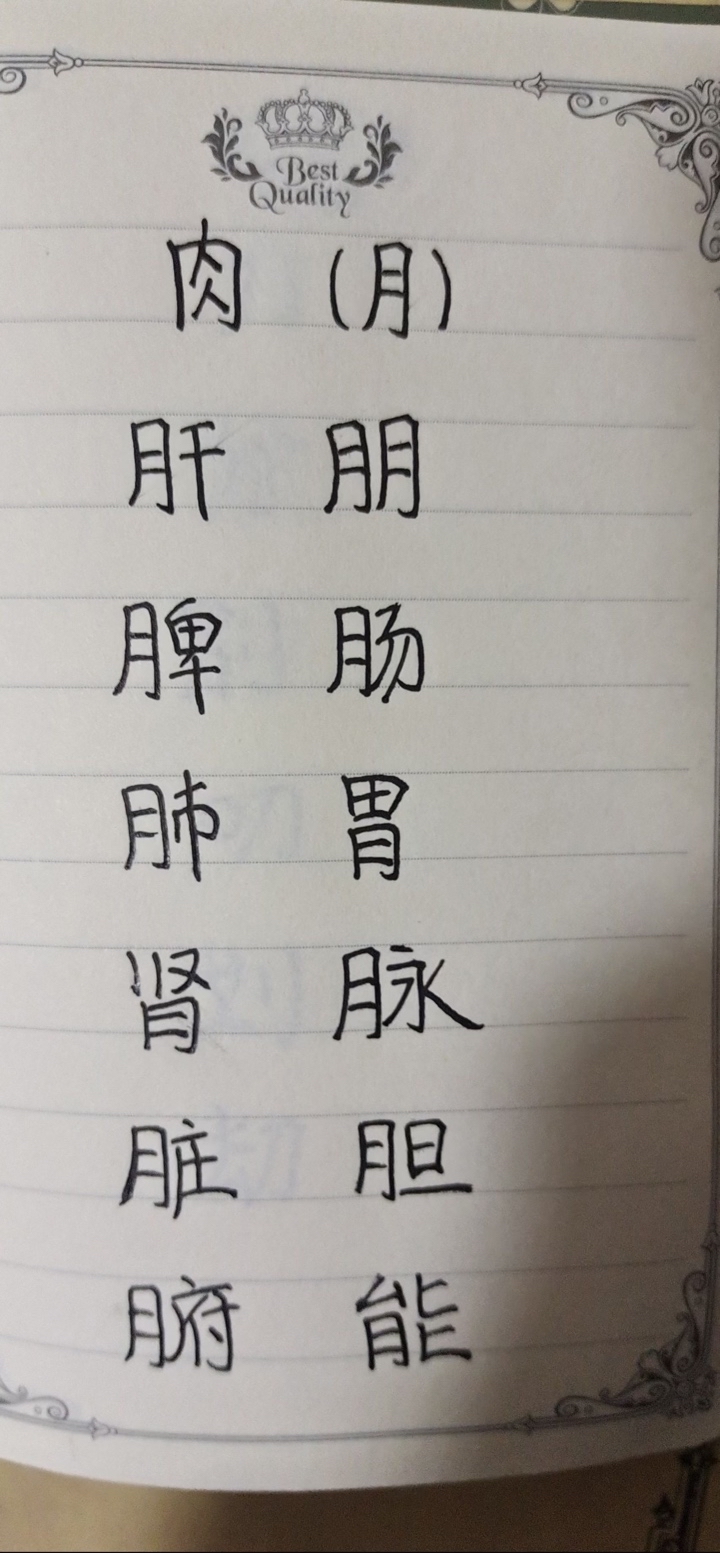 Best
Quality
肉 (月)
肝 朋
脾 肠
肺 胃
肾 脉
脏 胆
腑 能